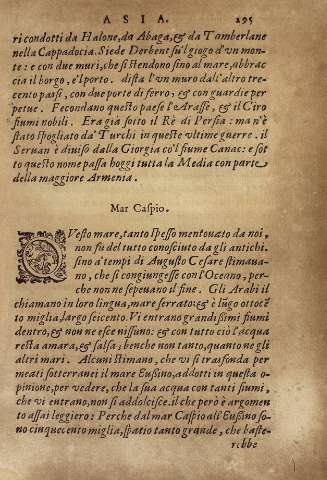 ASIA. 295
ri condotti da Halone, da Abaga, & da Tamberlane
nella Cappadocia. Siede Derbent sù'l giogo d'vn mon-
te: e con due muri, che si stendono sino al mare, abbrac-
cia il borgo, e'l porto. dista l'vn muro dall'altro tre-
cento passi, con due porte di ferro; & con guardie per-
petue. Fecondano questo paese l'Arasse, & il Ciro
fiumi nobili. Era già sotto il Rè di Persia: ma n'è
stato spogliato da' Turchi in queste vltime guerre. il
Seruan è diuiso dalla Giorgia co'l fiume Canac: e sot
to questo nome passa hoggi tutta la Media con parte
della maggiore Armenia.
Mar Caspio.
QVesto mare, tanto spesso mentouato da noi,
non fù del tutto conosciuto da gli antichi:
sino a' tempi di Augusto Cesare stimaua-
no, che si congiungesse con l'Oceano, per-
che non ne sapeuano il fine. Gli Arabi il
chiamano in loro lingua, mare serrato: & è lũgo ottocē
to miglia, largo seicento. Vi entrano grandissimi fiumi
dentro, & non ne esce nissuno: & con tutto ciò l'acqua
resta amara, & salsa; benche non tanto, quanto ne gli
altri mari. Alcuni stimano, che vi trasfonda per
meati sotterranei il mare Eussino, addotti in questa o-
pinione, per vedere, che la sua acqua con tanti fiumi,
che vi entrano, non si addolcisce. il che però è argomen
to assai leggiero: Perche dal mar Caspio all'Eussino so-
no cinquecento miglia, spatio tanto grande, che baste-
rebbe